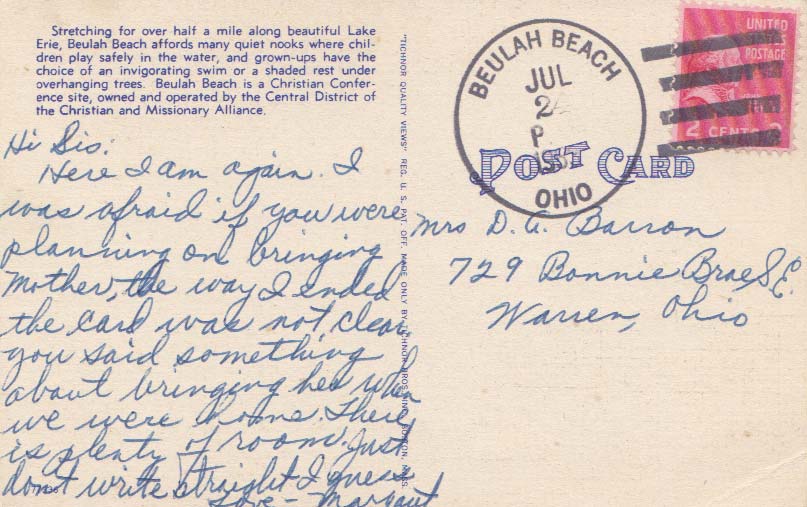 Stretching for over half a mile along beautiful Lake
Erie, Beulah Beach affords many quiet nooks where chil-
dren play safely in the water, and grown-ups have the
choice of an invigorating swim or a shaded rest under
overhanging trees. Beulah Beach is a Christian Confer-
ence site, owned and operated by the Central District of
the Christian and Missionary Alliance.
Hi Sis:
Here I am again. I
was afraid if you were
planning on bringing
Mother, the way I ended
the card was not clear
you said something
about bringing her when
we were home. There
is plenty of room. Just
don't write straight I guess
Love - Margaret
"TICHNOR QUALITY VIEWS" REG. U. S. PAT. OFF. MADE ONLY BY TICHNOR BROS. INC. BOSTON, MASS.
BEULAH BEACH
JUL
P
OHIO
UNITED
STATES
POSTAGE
2 CENTS 2
POST CARD
Mrs D. A. Barron
729 Bonnie Brae S.E.
Warren, Ohio